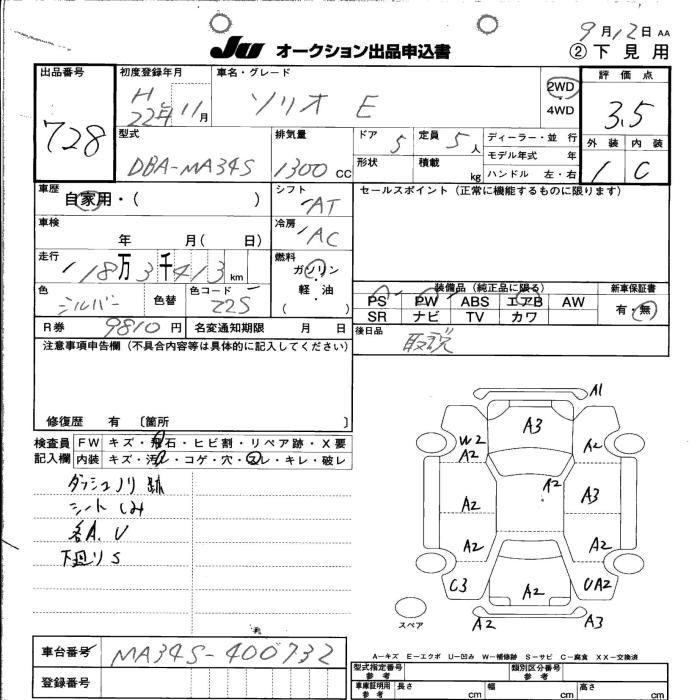 9月12日 AA
JU オークション出品申込書 ②下見用
出品番号 728
初度登録年月 H 22年11月
車名・グレード ソリオ E
2WD
4WD
評価点 3.5
外装 1 内装 C
型式 DBA-MA34S
排気量 1300 CC
ドア 5 定員 5人
形状 積載 kg
ディーラー・並行
モデル年式 年
ハンドル 左・右
車歴 自家用・( )
シフト AT
セールスポイント (正常に機能するものに限ります)
車検 年 月( 日)
冷房 AC
走行 118万3千413km
燃料 ガソリン
軽・油
( )
色 シルバー 色替 色コード Z2S
装備品 (純正品に限る)
PS PW ABS エアB AW
SR ナビ TV カワ
新車保証書 有・無
R券 9810円 名変通知期限 月 日
後日品 取説
注意事項申告欄 (不具合内容等は具体的に記入してください)
修復歴 有 〔箇所 〕
検査員 FW キズ・飛石・ヒビ割・リペア跡・X要
記入欄 内装 キズ・汚レ・コゲ・穴・スレ・キレ・破レ
ダッシュノリ跡
シートしみ
各A. U
下廻りS
A1
A3
W2
A2
A2
A2
A2
A3
A2
A2
C3
A2
UA2
A2
A3
スペア
車台番号 MA34S-400732
登録番号
A-キズ E-エクボ U-凹み W-補修跡 S-サビ C-腐食 XX-交換済
型式指定番号 参考
類別区分番号 参考
車庫証明用 参考 長さ cm 幅 cm 高さ cm